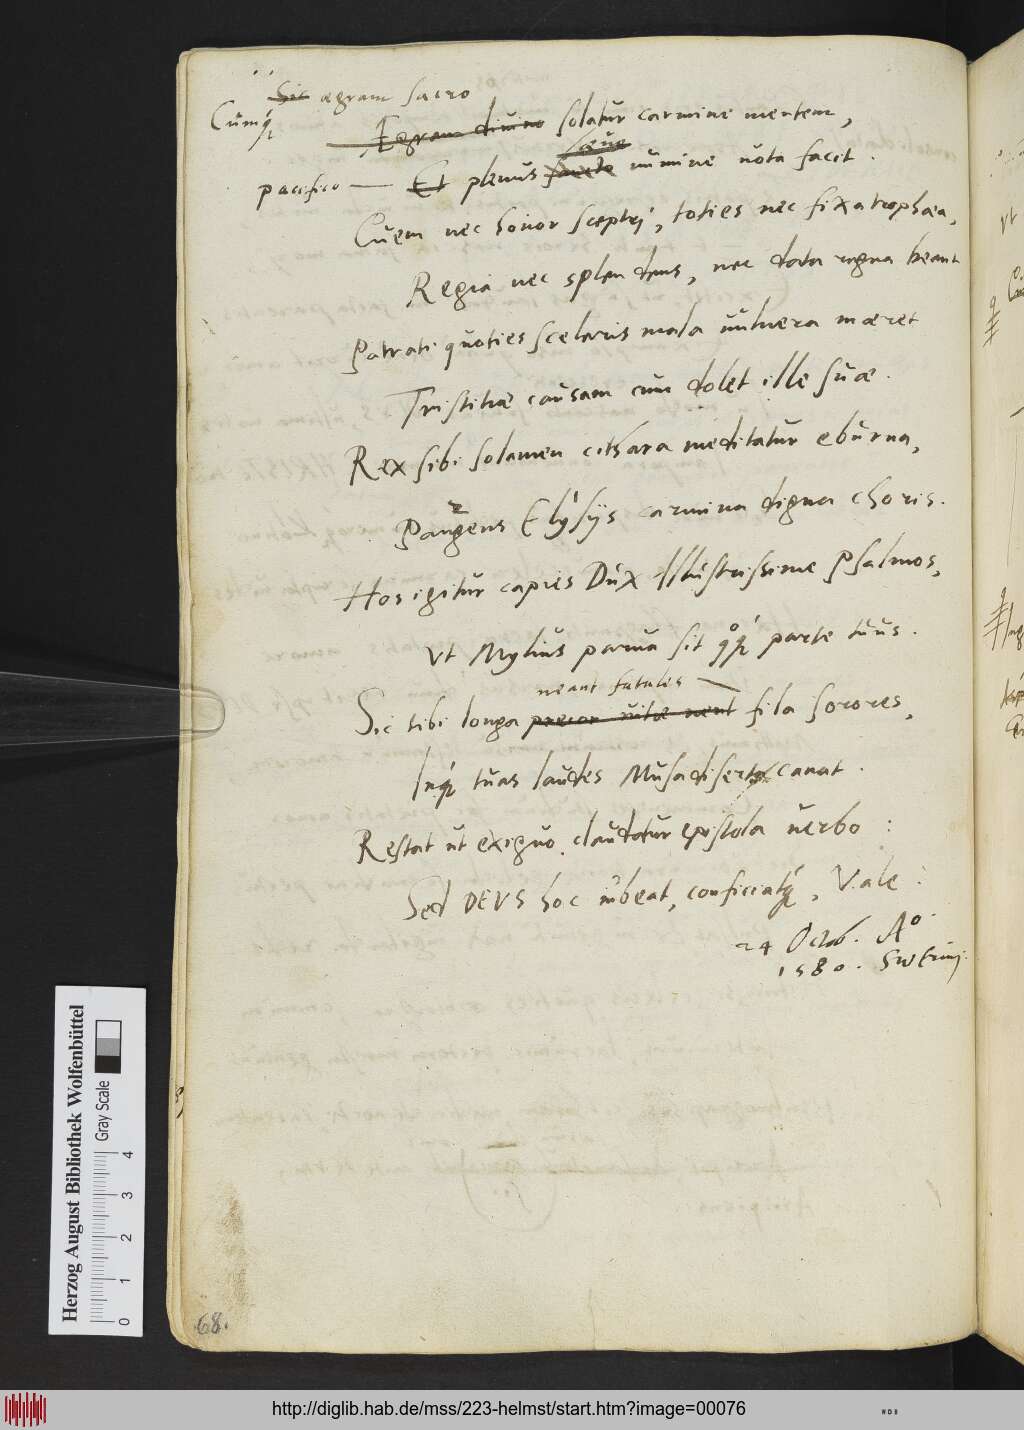 Sic ægram sacro
Cumq́
Ægram diuino solatur carmine mentem,
sæue
pacifico — Et plenus facto numine nota facit.
Quem nec honor sceptrj, toties nec fixa trophæa,
Regia nec splendens, nec dota regna beant
Patrati quoties sceleris mala uulnera mæret
Tristitiæ causam cum dolet ille suæ.
Rex sibi solamen cithara meditatur eburna,
Pangens Elysijs carmina digna choris.
Hos igitur capies Dux Illustrissime Psalmos,
Vt Mylius parua sit qoq́ parte tuus.
neant fatales
Sic tibi longa precor uitæ nent fila sorores,
Inq́ tuas laudes Musa diserta canat.
Restat ut exiguo claudatur epistola uerbo:
Sed DEVS hoc iubeat, conficiatq́, Vale:
24 Octob. Ao.
1580. Swerinj.
68.
Herzog August Bibliothek Wolfenbüttel
Gray Scale
0 1 2 3 4
http://diglib.hab.de/mss/223-helmst/start.htm?image=00076